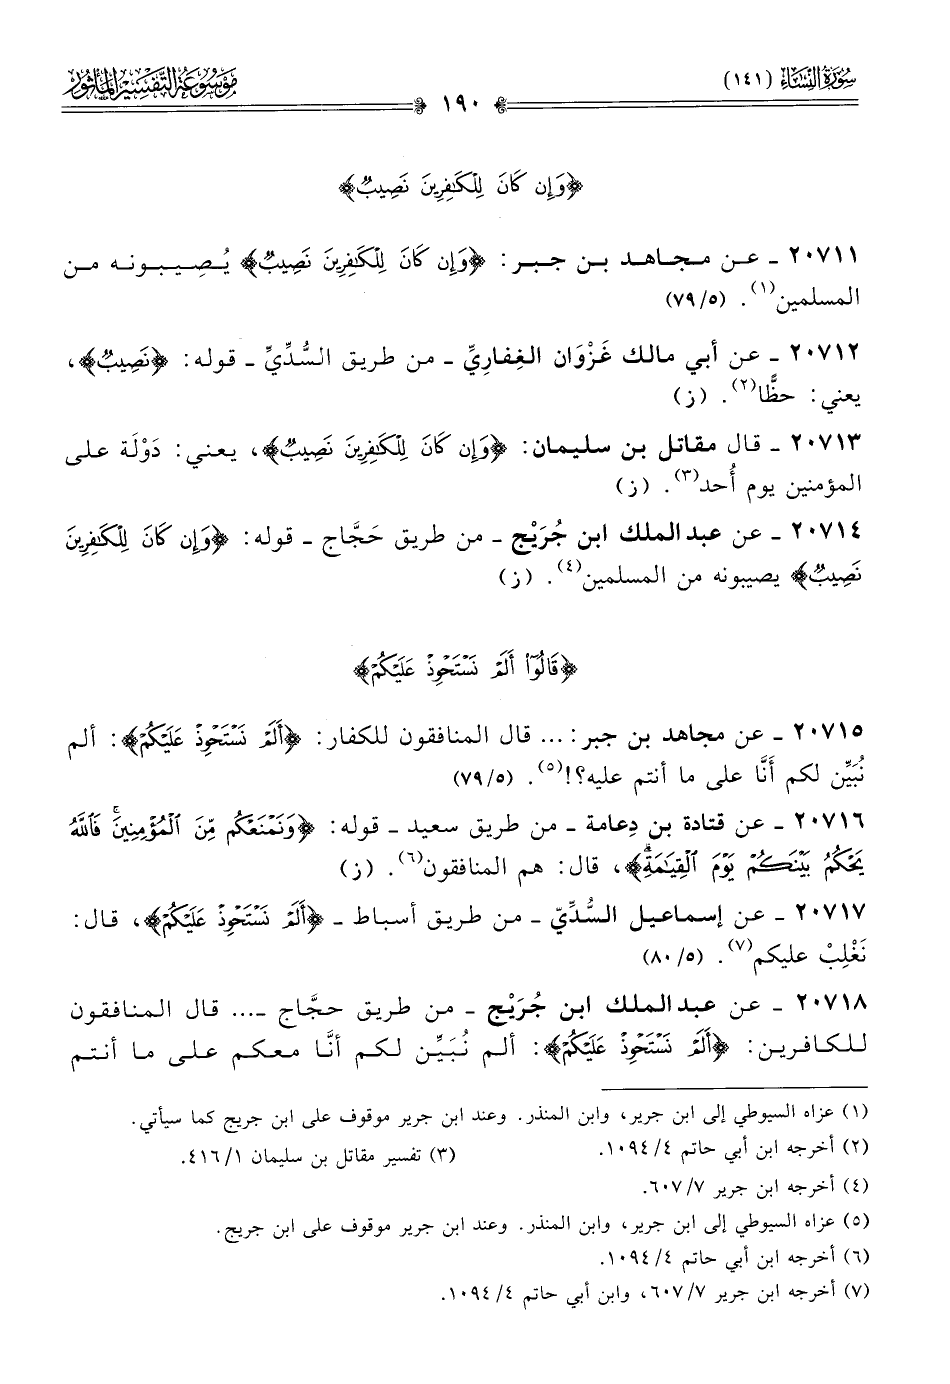 سُورَةُ النِّسَاءِ (١٤١)
١٩٠
مَوْسُوعَة التَّفْسِيرِ المَأْثُور
﴿وَإِن كَانَ لِلْكَٰفِرِينَ نَصِيبٌ﴾
٢٠٧١١ ـ عـن مجـاهـد بـن جبـر: ﴿وَإِن كَانَ لِلْكَٰفِرِينَ نَصِيبٌ﴾ يُـصِيـبـونـه مـن
المسلمين(١). (٧٩/٥)
٢٠٧١٢ ـ عن أبي مالك غَزْوَان الغِفاريِّ ـ من طريق السُّدِّيِّ ـ قوله: ﴿نَصِيبٌ﴾،
يعني: حظًّا(٢). (ز)
٢٠٧١٣ ـ قال مقاتل بن سليمان: ﴿وَإِن كَانَ لِلْكَٰفِرِينَ نَصِيبٌ﴾، يعني: دَوْلَة على
المؤمنين يوم أُحد(٣). (ز)
٢٠٧١٤ ـ عن عبد الملك ابن جُرَيْج ـ من طريق حَجَّاج ـ قوله: ﴿وَإِن كَانَ لِلْكَٰفِرِينَ
نَصِيبٌ﴾ يصيبونه من المسلمين(٤). (ز)
﴿قَالُوٓا۟ أَلَمْ نَسْتَحْوِذْ عَلَيْكُمْ﴾
٢٠٧١٥ ـ عن مجاهد بن جبر: ... قال المنافقون للكفار: ﴿أَلَمْ نَسْتَحْوِذْ عَلَيْكُمْ﴾: ألم
نُبَيِّن لكم أَنَّا على ما أنتم عليه؟!(٥). (٧٩/٥)
٢٠٧١٦ ـ عن قتادة بن دِعامة ـ من طريق سعيد ـ قوله: ﴿وَنَمْنَعْكُم مِّنَ ٱلْمُؤْمِنِينَۚ فَٱللَّهُ
يَحْكُمُ بَيْنَكُمْ يَوْمَ ٱلْقِيَٰمَةِۗ﴾، قال: هم المنافقون(٦). (ز)
٢٠٧١٧ ـ عن إسماعيل السُّدِّيّ ـ من طريق أسباط ـ ﴿أَلَمْ نَسْتَحْوِذْ عَلَيْكُمْ﴾، قال:
نَغْلِبْ عليكم(٧). (٨٠/٥)
٢٠٧١٨ ـ عن عبد الملك ابن جُرَيْج ـ من طريق حجَّاج ـ... قال المنافقون
للكافرين: ﴿أَلَمْ نَسْتَحْوِذْ عَلَيْكُمْ﴾: ألم نُبَيِّن لكم أنَّا معكم على ما أنتم
(١) عزاه السيوطي إلى ابن جرير، وابن المنذر. وعند ابن جرير موقوف على ابن جريج كما سيأتي.
(٢) أخرجه ابن أبي حاتم ١٠٩٤/٤.
(٣) تفسير مقاتل بن سليمان ٤١٦/١.
(٤) أخرجه ابن جرير ٦٠٧/٧.
(٥) عزاه السيوطي إلى ابن جرير، وابن المنذر. وعند ابن جرير موقوف على ابن جريج.
(٦) أخرجه ابن أبي حاتم ١٠٩٤/٤.
(٧) أخرجه ابن جرير ٦٠٧/٧، وابن أبي حاتم ١٠٩٤/٤.